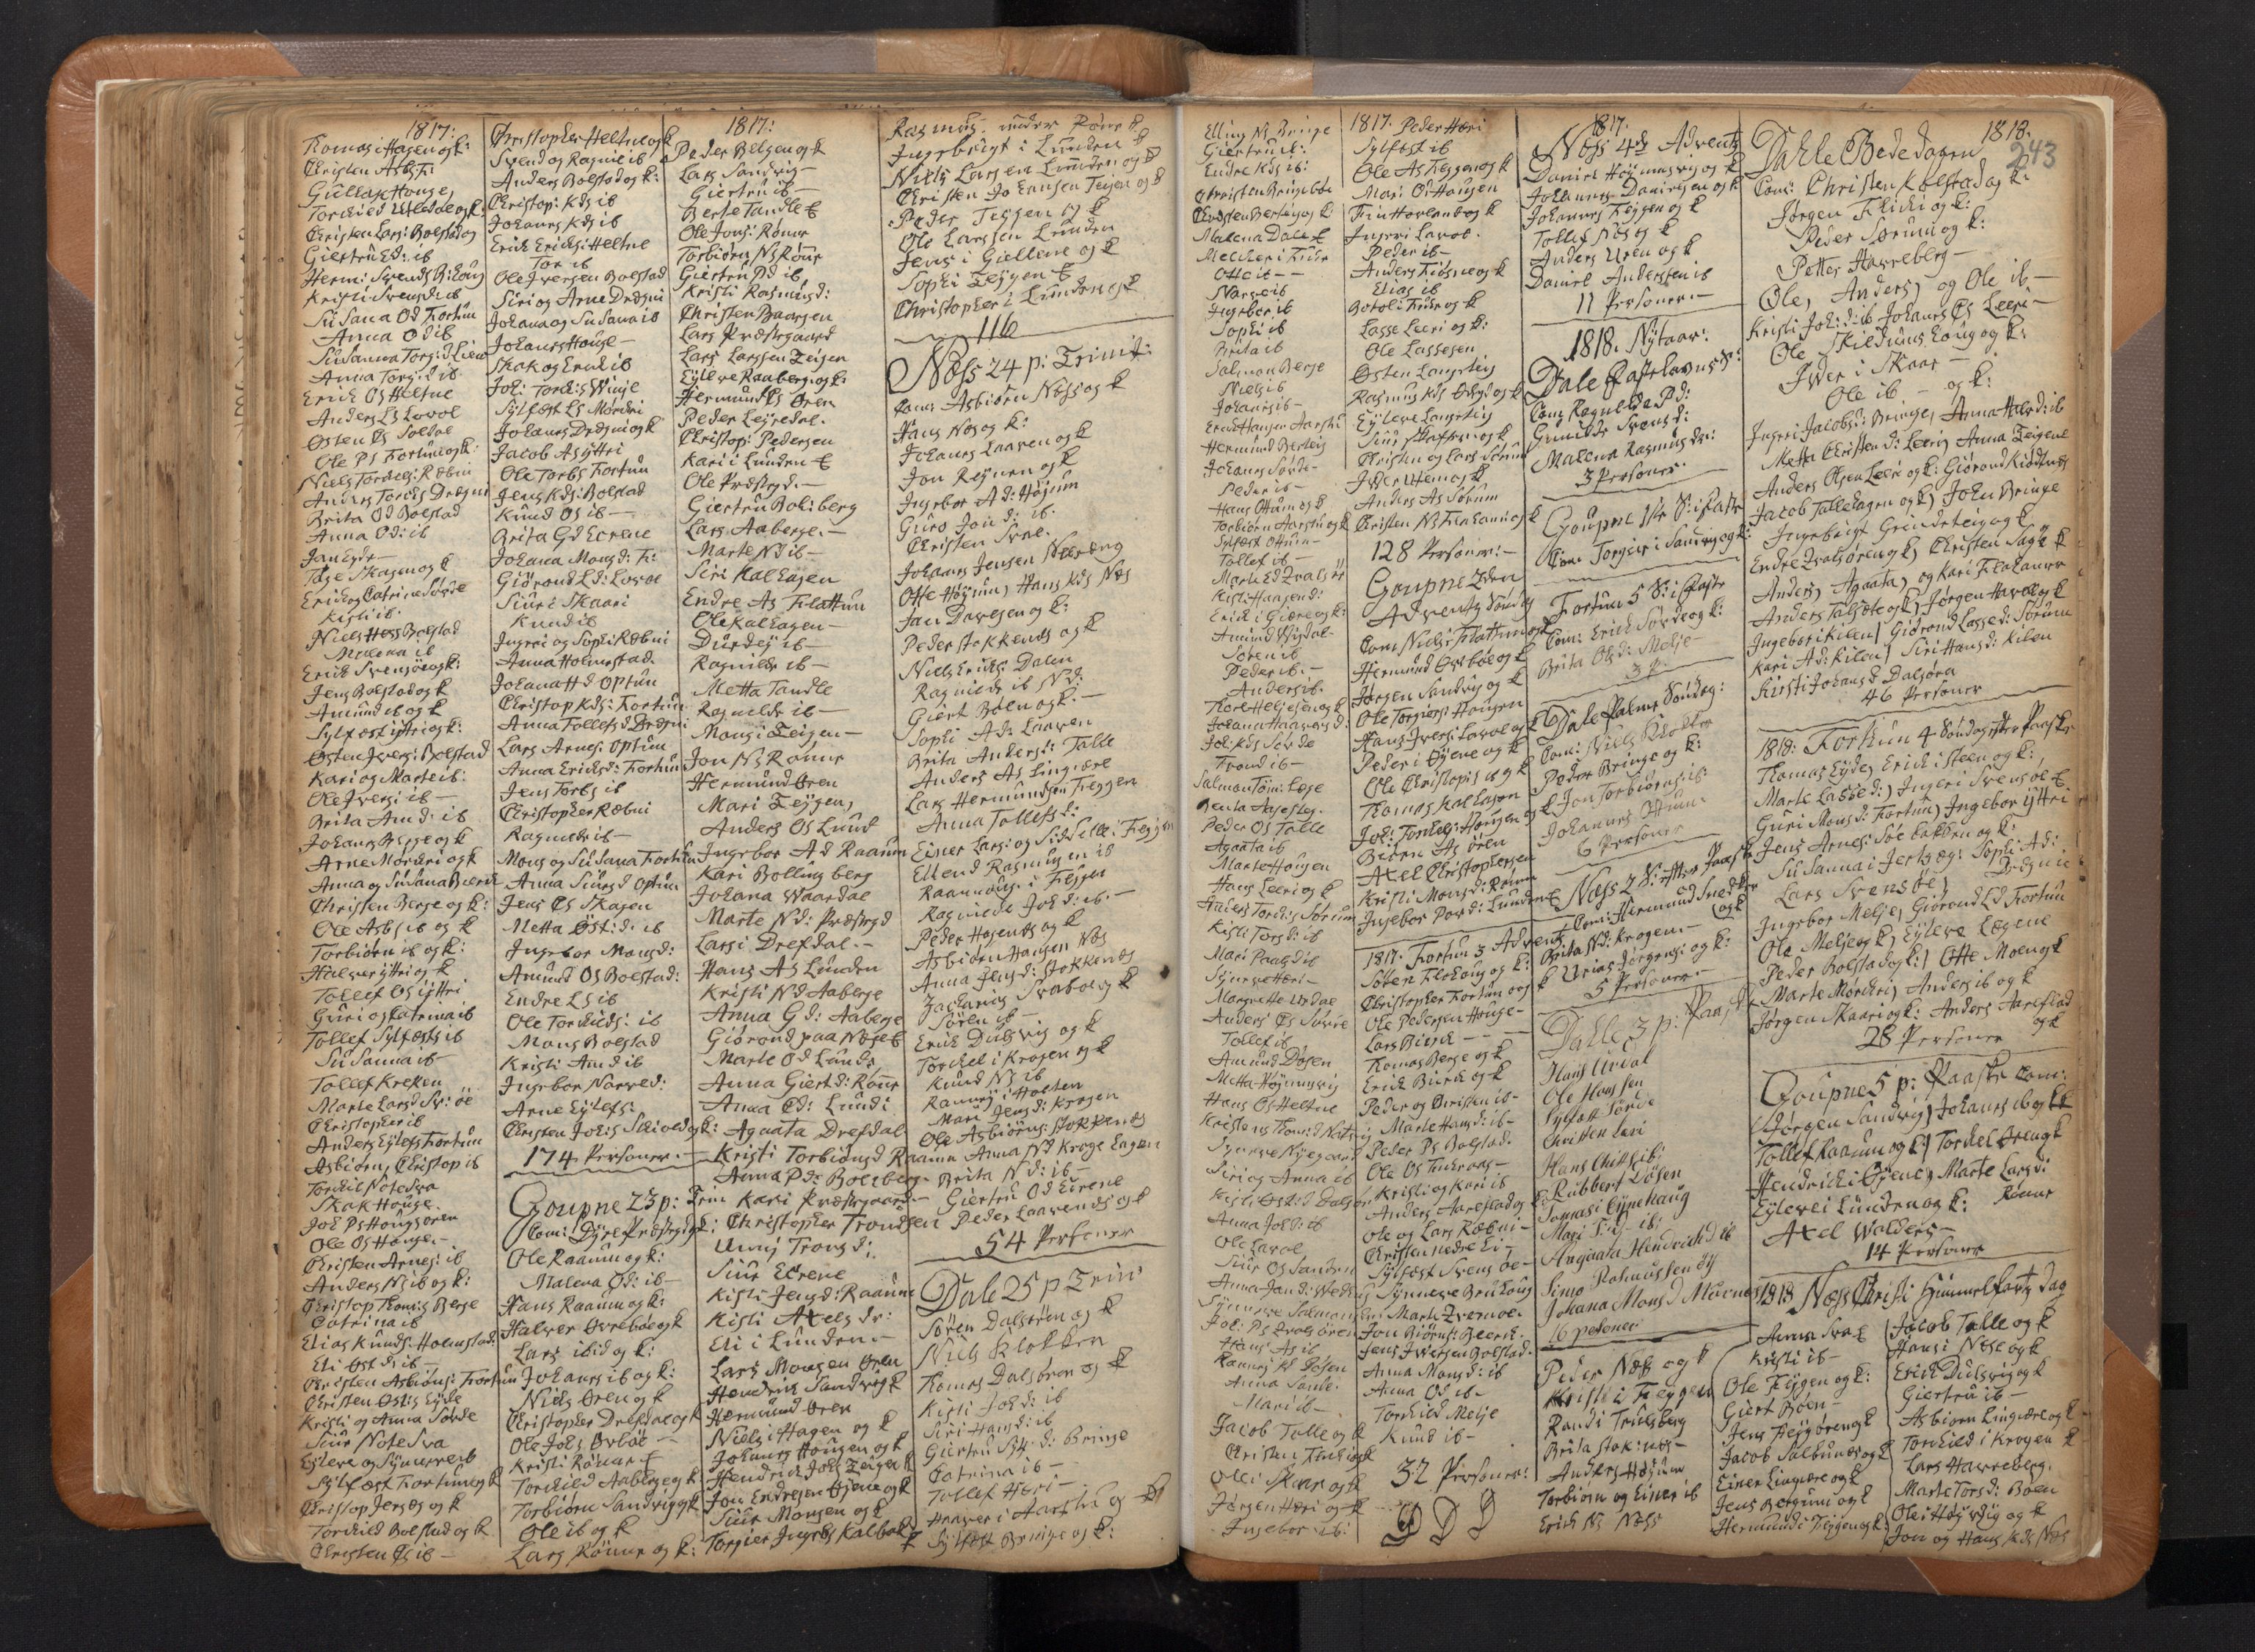 1817:
Tomas i Hagen og k:
Christen Asb: F:
Gullak Houge,
Torkild Utledal og k:
Christen Lars: Bolstad og
Giertrud K: ib
Herm: Svends: B: houg
Kristi Svensd: ib
Susana Od Fortun
Anna Od ib
Susanna Torg: d Lien
Anna Torg: d ib
Erich Os Heltne
Anders Ls Lovol
Østen Es Soldal
Ole Ps Fortun og k:
Niels Torkels: Ræbni
Anders Torkls Drægni
Brita Od Bolstad
Anna Od: ib
Jan Eyde
Tage Skagen og k
Erich og Catrina Sørde
Kisti ib:
Niels Bolstad
Malena ib
Erich Svensøe og k:
Jens Bolstad og k
Amund ib og k
Sylfest Yttri og k:
Østen Ivers: Bolstad
Kari og Marte ib:
Ole Ivers: ib
Brita Amd: ib
Johans Berge og k
Arne Mørkri og k
Anna og Susana Bierck
Christen Berge og k:
Ole Asbs ib og k
Torbiørn ib og k:
Halver Yttri og k
Tollef Os Yttri
Guri og Catrina ib
Tollef Sylfests ib
Susanna ib
Tollef Kreken
Marte Larsd Sv: øe
Christopher ib
Anders Eylefs Fortun
Asbiørn, Christop ib
Torkil Notesva
Skak Houge
Joh Ps Hougsøren
Ole Os Houge
Christen Arnes: ib
Anders Ns ib og k:
Christop Thomas Berge
Catrina ib
Elias Knuds: Holmstad:
Eli Øst d: ib
Christen Asbiøns: Fortun
Christen Øst: s Eyde
Kristi og Anna Sørde
Siur Notesva
Eyleve og Synneve ib
Sylfæst Fortun og k
Christop Jersæs og k
Torkild Bolstad og k
Christen Es ib
Christopher Heltne og k
Svend og Ragnile ib
Anders Bolstad og k:
Christop: Kds ib
Johans Kds ib
Erich Erichs: Heltne
Tor ib
Ole Iversen Bolstad
Siri og Arne Drægni
Johana og Susana ib
Johans Houge
Skak og Erich ib
Joh: Torkils Winje
Sylfest Ls Mørkri
Johans Drægni og k
Jacob As Yttri
Ole Torbs Fortun
Jens Kds: Bolstad
Knud Os ib
Brita Gd Ecrene
Johana Mons d: F:
Giørond Ld: Lovol
Siuri Skaari
Knud ib
Ingeri og Sophi Ræbni
Anna Holmestad
Johana Hd Optun
Christop Kds: Fortun
Anna Tollefsd Drægni
Lars Arnes: Optun
Anna Erichsd: Fortun
Jens Torbs ib
Christopher Ræbni
Ragnilde ib
Mons og Susana Fortun
Anna Siursd Optun
Jens Es Skagen
Metta Øst: d: ib
Ingebor Monsd:
Amund Os Bolstad:
Endre Ls ib
Ole Torkilds: ib
Mons Bolstad
Kristi Amd ib
Ingebor Narved:
Arne Eylefs:
Christen Johs Skiold og k:
174 Personer
Goupne 23 p: Trin
Com: Dyre Præstegd og k:
Ole Raaum og k:
Malena Od: ib
Hans Raaum og k:
Halver Ovrebøe og k
Lars ibid og k:
Johans ib og k:
Niels Øren og k
Christopher Drefdal og k
Ole Johs Ovbøe
Kristi Rønar E
Torkild Aaberge og k
Torbiørn Sandvig og k
Ole ib og k
Lars Rønne og k:
1817:
Peder Bergen og k
Lars Sandvig
Giertru ib
Berte Tandle E
Ole Jons: Rønne
Torbiørn Ns Rønr
Giertru Pd ib
Kristi Rasmusd:
Christen Baarsen
Lars Præstegaard
Lars Larsen Teigen
Eyleve Raaberg og k:
Hermund Es Øren
Peder Leyredal
Christop: Pedersen
Kari i Lunden E
Ole Præstegd.
Giertru Bol: berg
Lars Aaberge
Marte Nd ib
Siri Kalhagen
Endre As Flattun
Ole Kalhagen
Durdey ib
Ragnilde ib
Metta Tandle
Ragnilde ib
Mons i Teigen
Jon Ns Rønne
Hermund Øren
Mari Teygen,
Anders Os Lund
Ingebor Ad Raaum
Kari Bollingberg
Johana Waardal
Marte Nd: Præstegd
Lars i Drefdal
Hans As Lunden
Kristi Nd Aaberge
Anna Gd: Aaberge
Giørond paa Næset
Marte Od Lunde
Anna Giertd: Rønr
Anna Ed: Lundi
Agaata Drefdal
Kristi Torbiønsd Raaum
Anna Pd: Bolleberg
Kari Præstegaard
Christopher Trondsen
Unni Tronsd:
Siur Ecrene
Kisti Jensd: Raaum
Kisti Axels d:
Eli i Lunden
Lars Monsen Øren
Hendrich Sandvig k
Hermund Øren
Niels i Hagen og k
Johans Hougen og k
Hendrich Johs Teigen k
Jon Endresen Øyene og k
Siur Monsen og k
Torgier Ingebs Kalbak k
Rasmus under Rønr k
Ingebrigt i Lunden k
Niels Larsen Lunden og k
Christen Johansen Teigen og k
Peder Teygen og k
Ole Larssen Lunden
Jens i Giellene og k
Sophi Teygen E
Christopher i Lunden og k
116
Næss 24 p: Trinit:
Com: Asbiørn Næss og k
Hans Næs og k:
Johans Laaven og k
Jon Reynen og k
Ingebor Ad: Høyum
Guro Jond: ib.
Christen Svae.
Johans Jensen Næseng
Otte Høyum, Hans Kds Næs
Jan Davesen og k:
Peder Stokkenæs og k
Niels Erichs: Dalen
Ragnilde ib Nd:
Giert Bølen og k.
Sophi Ad: Laaven
Brita Anders d: Talle
Anders As Lingiære
Lars Hermundsen Feygen
Anna Tollefsd:
Einer Lars: og Sidselle: Feygen
Ellend Rasmusen ib
Raamoug i Feygen
Ragnilde Joh d: ib.
Peder Hagenes og k
Asbiørn Hansen Næs
Anna Jensd: Stokkenæs
Zacharias Svabøe og k
Søren ib
Erich Dulsvig og k
Torckel i Krogen og k
Knud Ns ib
Rannvi i Holten
Mari Jensd: Krogen
Ole Asbiørns: Stokkenæs
Anna Nd Krogehagen
Brita Nd: ib
Giertru Od Eirene
Peder Laavenæs og k
54 Personer
Dale 25 p Trin
Søren Dalsøren og k
Niels Klokken
Thomas Dalsøren og k
Kisti Joh d: ib
Siri Hans d: ib
Giertru Sylf: d: Bringe
Catrina ib
Tollef Hæri
Halver i Aarstu og k
Sylfest Bringe og k:
Elling Ns Bringe
Giertru E:
Endre Kds ib:
Christen Bringebøe
Christen Berseig og k
Malena Dale E
Melcher i Fuur
Otte ib
Narve ib
Ingebor ib
Sophi ib
Brita ib
Salmon Berge
Niels ib
Johans ib
Erich Hansen Aarstu
Hermund Berseig
Johans Sørde
Peder ib
Hans Ottum og k
Torbiørn Aarstu og k
Sylfest Ottum
Tollef ib
Marte Ed Dvalsør
Kisti Hansend:
Erich i Giære og k:
Amund Urdal
Søren ib
Peder ib:
Anders ib.
Karl Helgesen og k
Johana Haavars d:
Joh: Kds Sørde
Trond ib
Salmon Tom: Eege
Peder Os Talle
Agaata ib
Marte Hougen
Hans Leeri og k
Anders Torckls Sørum
Kisti Torsd: ib
Mari Paalsd ib
Synneve Hæri
Margrette Urdal
Anders Es Sørde
Tollef ib
Amund Døsen
Metta Høyumsvig
Hans Os Heltne
Synneve Nyegaar
Siri og Anna ib
Anna Joh d: ib
Ole Lavol
Siur Os Sanden
Joh: Ps Dvalsøren
Hans As ib
Rannvi Kd Døsen
Anna Sande
Mari ib
Jacob Talle og k
Christen Flicki og k
Ole i Skaar og k
Jørgen Hæri og k
Ingebor ib:
1817: Peder Hæri
Sylfæst ib
Ole As Feggen og k
Mari Os Hougen
Finn Hovland og k
Ingeri Lavol
Peder ib
Anders Fiøsne og k
Elias ib
Botol i Fuur og k
Lasse Leeri og k:
Ole Lassesen
Østen Langesteig
Rasmus Kds og k
Eyleve Langesteig
Siur Skaffer og k
Christen og Lars Sørum
Iver Utem og k
Anders As Sørum
Christen Ns Flahamr og k
128 Personer:
Goupne 2den
Advents Søndag
Com Niels Flattum og k
Hermund Ovrbøe og k
Jørgen Sandvig og k
Ole Torgiers: Hougen
Hans Ivers: Lavol og k
Peder i Øyene og k
Ole Christop: s og k
Thomas Kalhagen
Joh: Torkels: Hougen og k
Biørn As Øren
Axel Christophersen
Kristi Monsd: Rønne
Ingebor Povd: Lunden E
1817: Fortun 3 Advent
Søren Flohoug og k:
Christopher Fortun og k
Ole Pedersen Houge
Lars Bierck
Thomas Berge og k
Erich Bierck og k
Peder og Christen ib
Marte Hansd: ib
Peder Ps Bolstad
Ole Os Turkraas
Kristi og Kari ib
Anders Aareflad og k
Ole og Lars Ræbni
Christen nedre Ei
Sylfæst Svensøe
Synneve Brekhoug
Marte Dvernøe
Jon Biørns: Bierck
Jens Iversen Bolstad
Anna Monsd: ib
Anna Od ib
Torkild Melje
Knud ib
32 Personer:
DDD
1817.
Næss 4de Advents
Daniel Høyumsvig og k
Johannes Danielsen og k
Johannes Feygen og k
Tollef Næs og k
Anders Uren og k
Daniel Anderssen ib
11 Personer
1818. Nytaar:
Dale Fastelavns S:
Com Ragnilde Pd:
Gunilde Svensd:
Malena Rasmus dr:
3 Personer.
Goupne 1ste S: i Faste
Com Torger i Sandvig og k:
Fortun 5 S: i Faste
Com: Erich Sørde og k:
Brita Ols d: Melje
3 P:
Dale Palme Søndag:
Com: Niels Klokker
Peder Bringe og k:
Jon Torbiørns: ib
Johannes Ottum
6 Personer
Næss 2 S: efter Paaske
Com: Hermund Snedker og k
Brita Nd: Krogen
Urias Jørgens: og k:
5 Personer
Dalle 3 p: Paaske
Hans Urdal
Ole Hanssen
Sylfest Sørde
Christen Leri
Hans Christ: ib:
Rubbert Døsen
Tomas i Eynehaug
Mari Fi d ib:
Angaata Hendriksd ib
Simo Rasmussen Øy
Johana Mons d Marnes
16 personer
Peder Næss og k
Kristi i Feygen
Randi Trulsberg
Brita Stok: næs
Anders Høyum
Torbiørn og Einer ib
Erich Ns Næss
1818.
243
Dahle Bededagen
Com: Christen Kolstad og k:
Jørgen Flicki og k:
Peder Sørum og k:
Petter Harreberg
Ole, Anders, og Ole ib
Kristi Joh: d: ib Johans Es Leeri
Ole Skildunshoug og k:
Iver i Skaar
Ole ib og k:
Ingeri Jacobsd: Bringe, Anna Halvd: ib
Metta Christen d: Leeri, Anna Teigene
Anders Olsen Leeri og k: Giørond Kiødtnes
Jacob Tallehagen og k, John Bringe
Ingebrigt Grindesteig og k
Endre Dvalsøren og k, Christen Sage k
Anders, Agaata, og Kari Flahamr
Anders Talsete og k, Jørgen Havel og k
Ingebor i Kilen, Giørond Lassed: Sørum
Kari Ad: Kilen, Siri Hansd: Kilen
Kirsti Johans d Dalsøra
46 Personer
1818: Fortun 4 Søndag efter Paaske
Thomas Eyde, Erich i Steen og k:
Marte Lassed:, Ingeri Svensøe E
Guri Monsd: Fortun, Ingebor Yttri
Jens Arnes: Søebakken og k:
Susanna i Jersæ, Sophi Ad:
Lars Svensøe, Drægni
Ingebor Melje, Giørond Ld Fortun
Ole Melje og k, Eyleve Lægene
Peder Bolstad og k:, Otte Moen og k
Marte Mørkri, Anders ib og k
Jørgen Skaari og k: Anders Aareflad og k
28 Personer
Goupne 5 p: Paaske Com:
Jørgen Sandvig, Johans ib og k
Tollef Raaum og k, Torckel Øren og k
Hendrich i Øyene, Marte Larsd:
Eyleve i Lunden og k: Rønne
Axel Walders
14 Personer
1818 Næss Christi Himmelfarts dag
Anna Svae
Kristi ib
Ole Feygen og k:
Giert Bøen
Jens Feygøren og k
Jacob Salbunæs og k
Einer Lingiære og k
Jens Bergum og k
Hermund i Feygen og k:
Jacob Talle og k
Hans i Næse og k
Erich Dulsvig og k
Giertru ib
Asbiørn Lingiære og k
Torckild i Krogen k
Lars Harreberg.
Marte Torsd: Bøen
Ole i Høyvig og k
Jon og Hans Kds Næs